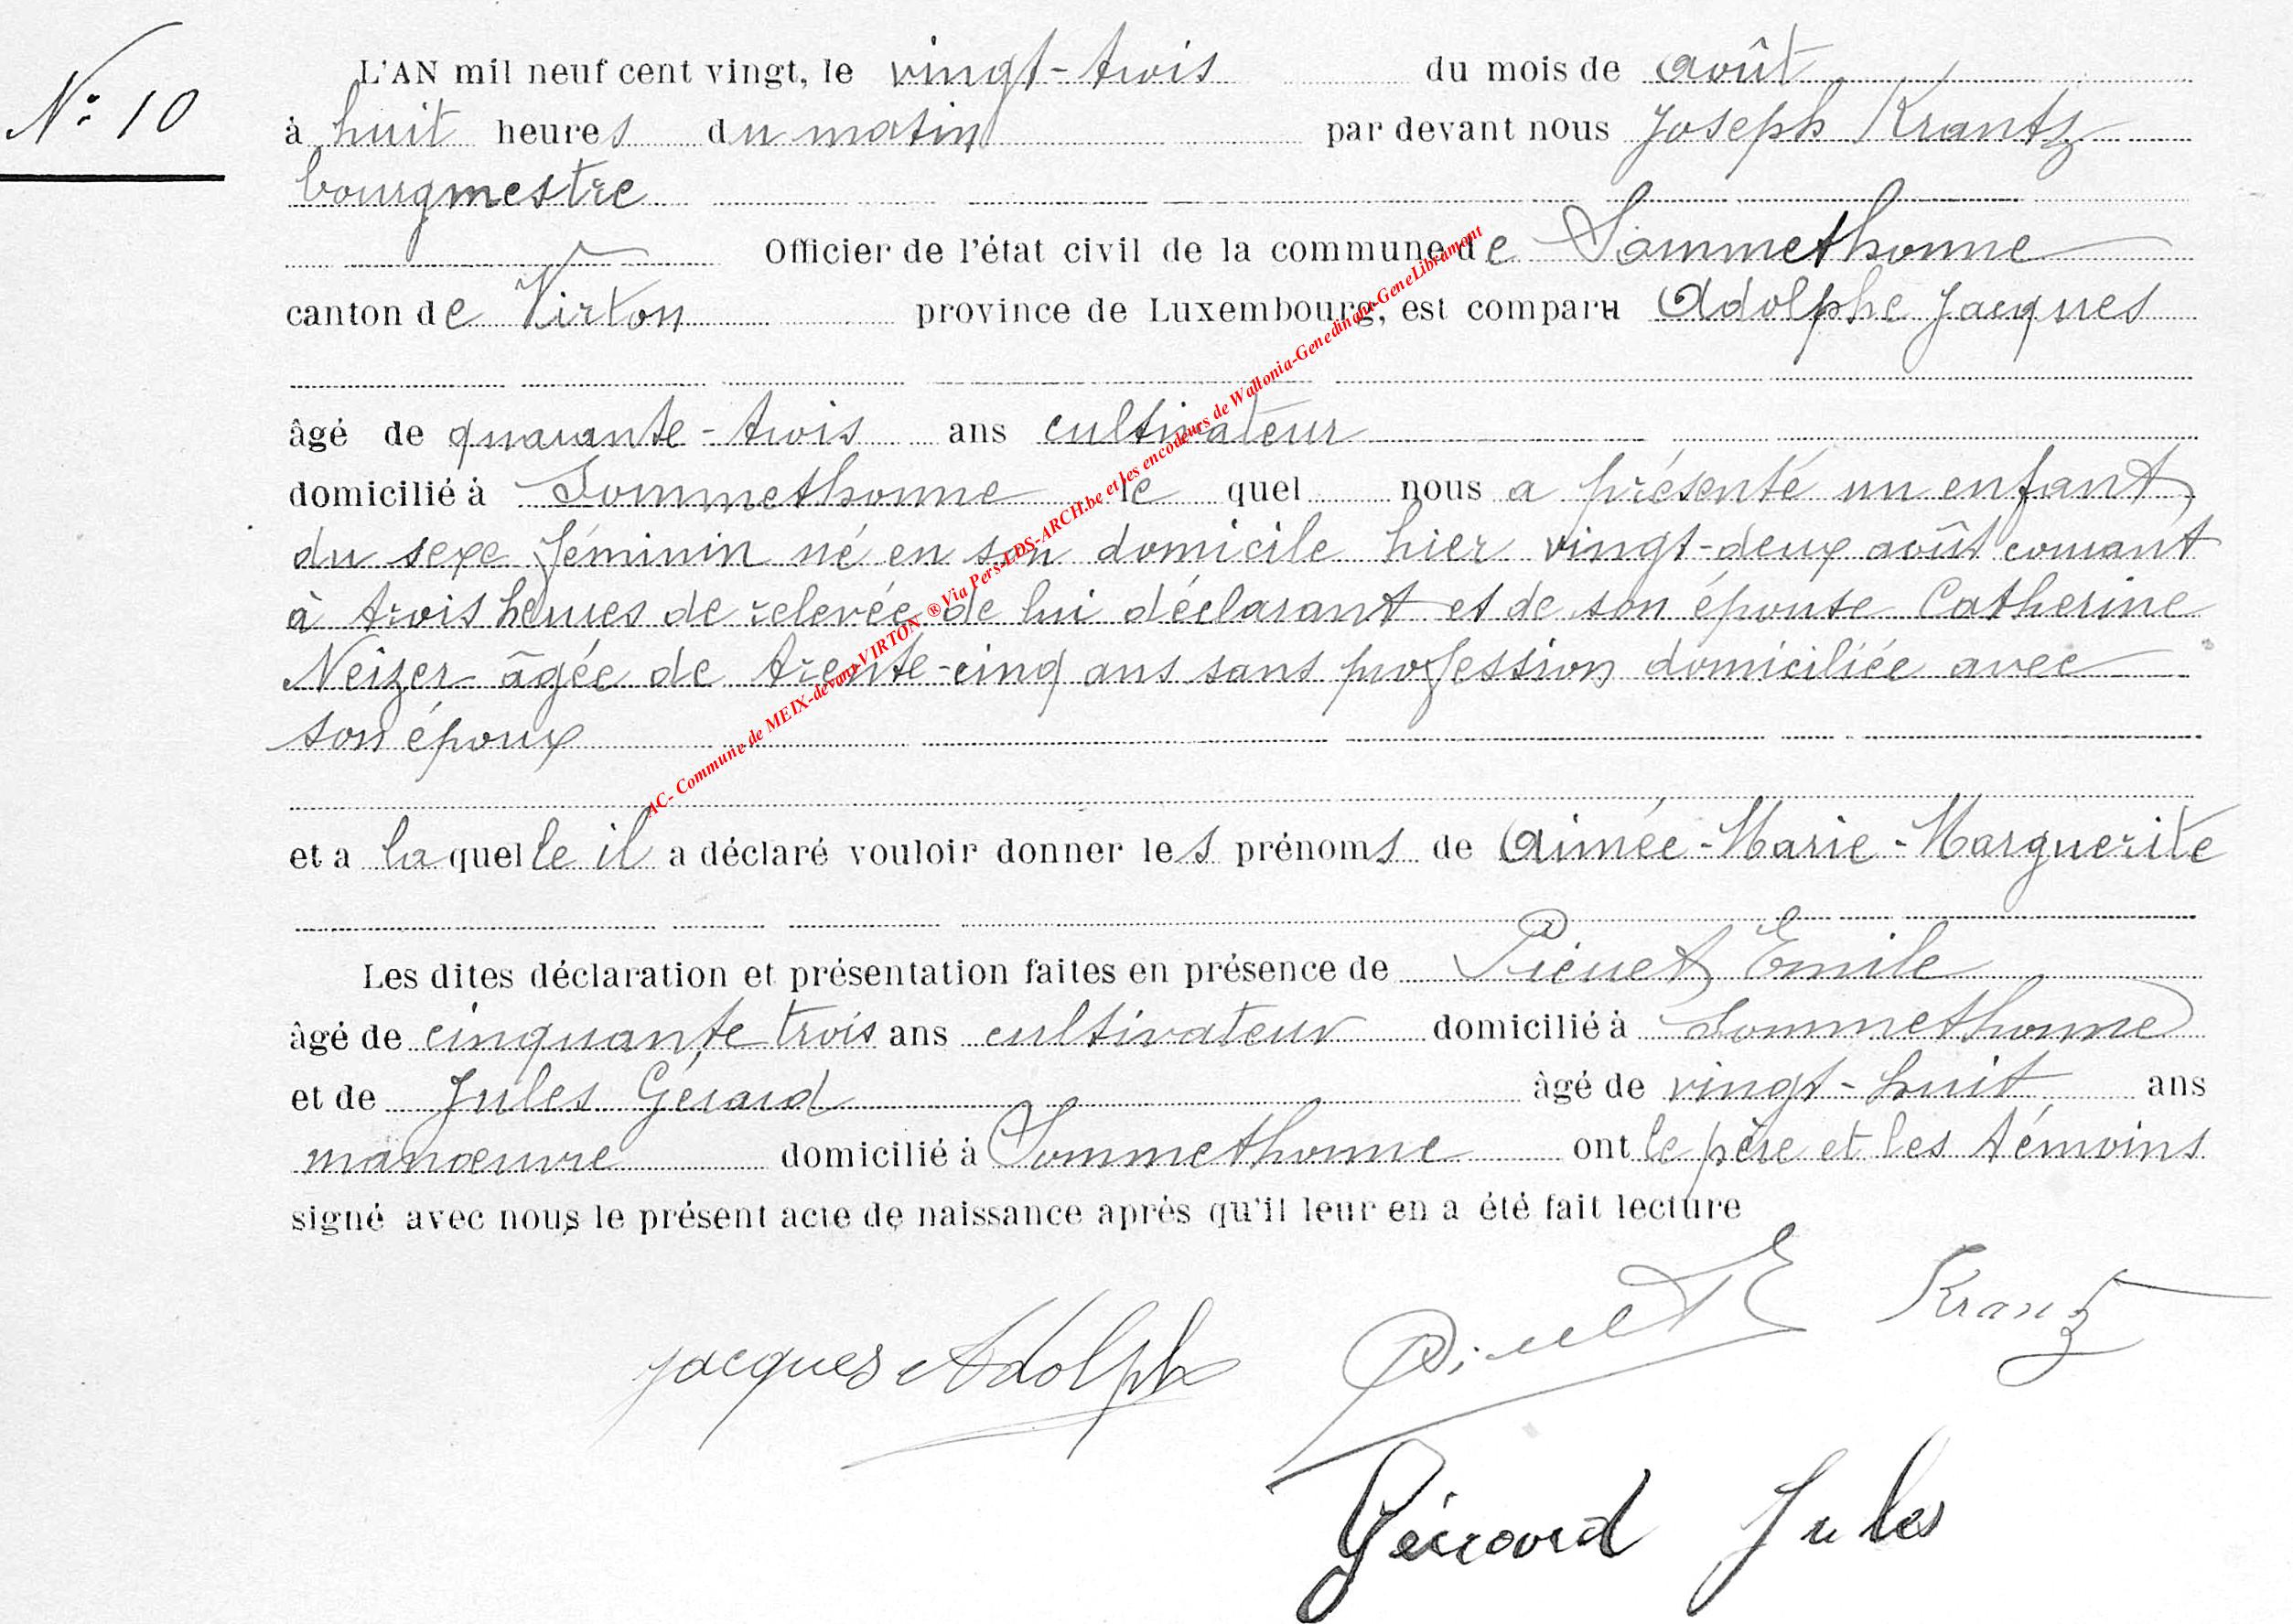 L'AN mil neuf cent vingt, le vingt-trois du mois de août
N° 10
à huit heures du matin par devant nous Joseph Krantz
bourgmestre
Officier de l'état civil de la commune de Sommethonne
canton de Virton province de Luxembourg, est comparu Adolphe Jacques
âgé de quarante-trois ans cultivateur
domicilié à Sommethonne le quel nous a présenté un enfant
du sexe féminin né en son domicile hier vingt-deux août courant
à trois heures de relevée de lui déclarant et de son épouse Catherine
Neizer âgée de trente-cinq ans sans profession domiciliée avec
son époux
et a la quelle il a déclaré vouloir donner les prénoms de Aimée-Marie-Marguerite
Les dites déclaration et présentation faites en présence de Pierret Emile
âgé de cinquante trois ans cultivateur domicilié à Sommethonne
et de Jules Gérard âgé de vingt-huit ans
manœuvre domicilié à Sommethonne ont le père et les témoins
signé avec nous le présent acte de naissance après qu'il leur en a été fait lecture
Jacques Adolphe
Krantz
Gérard Jules
AC- Commune de MEIX-devant-VIRTON ® Via Pers-LDS-ARCH.be et les encodeurs de Wallonia-Genedinant-GeneLibramont